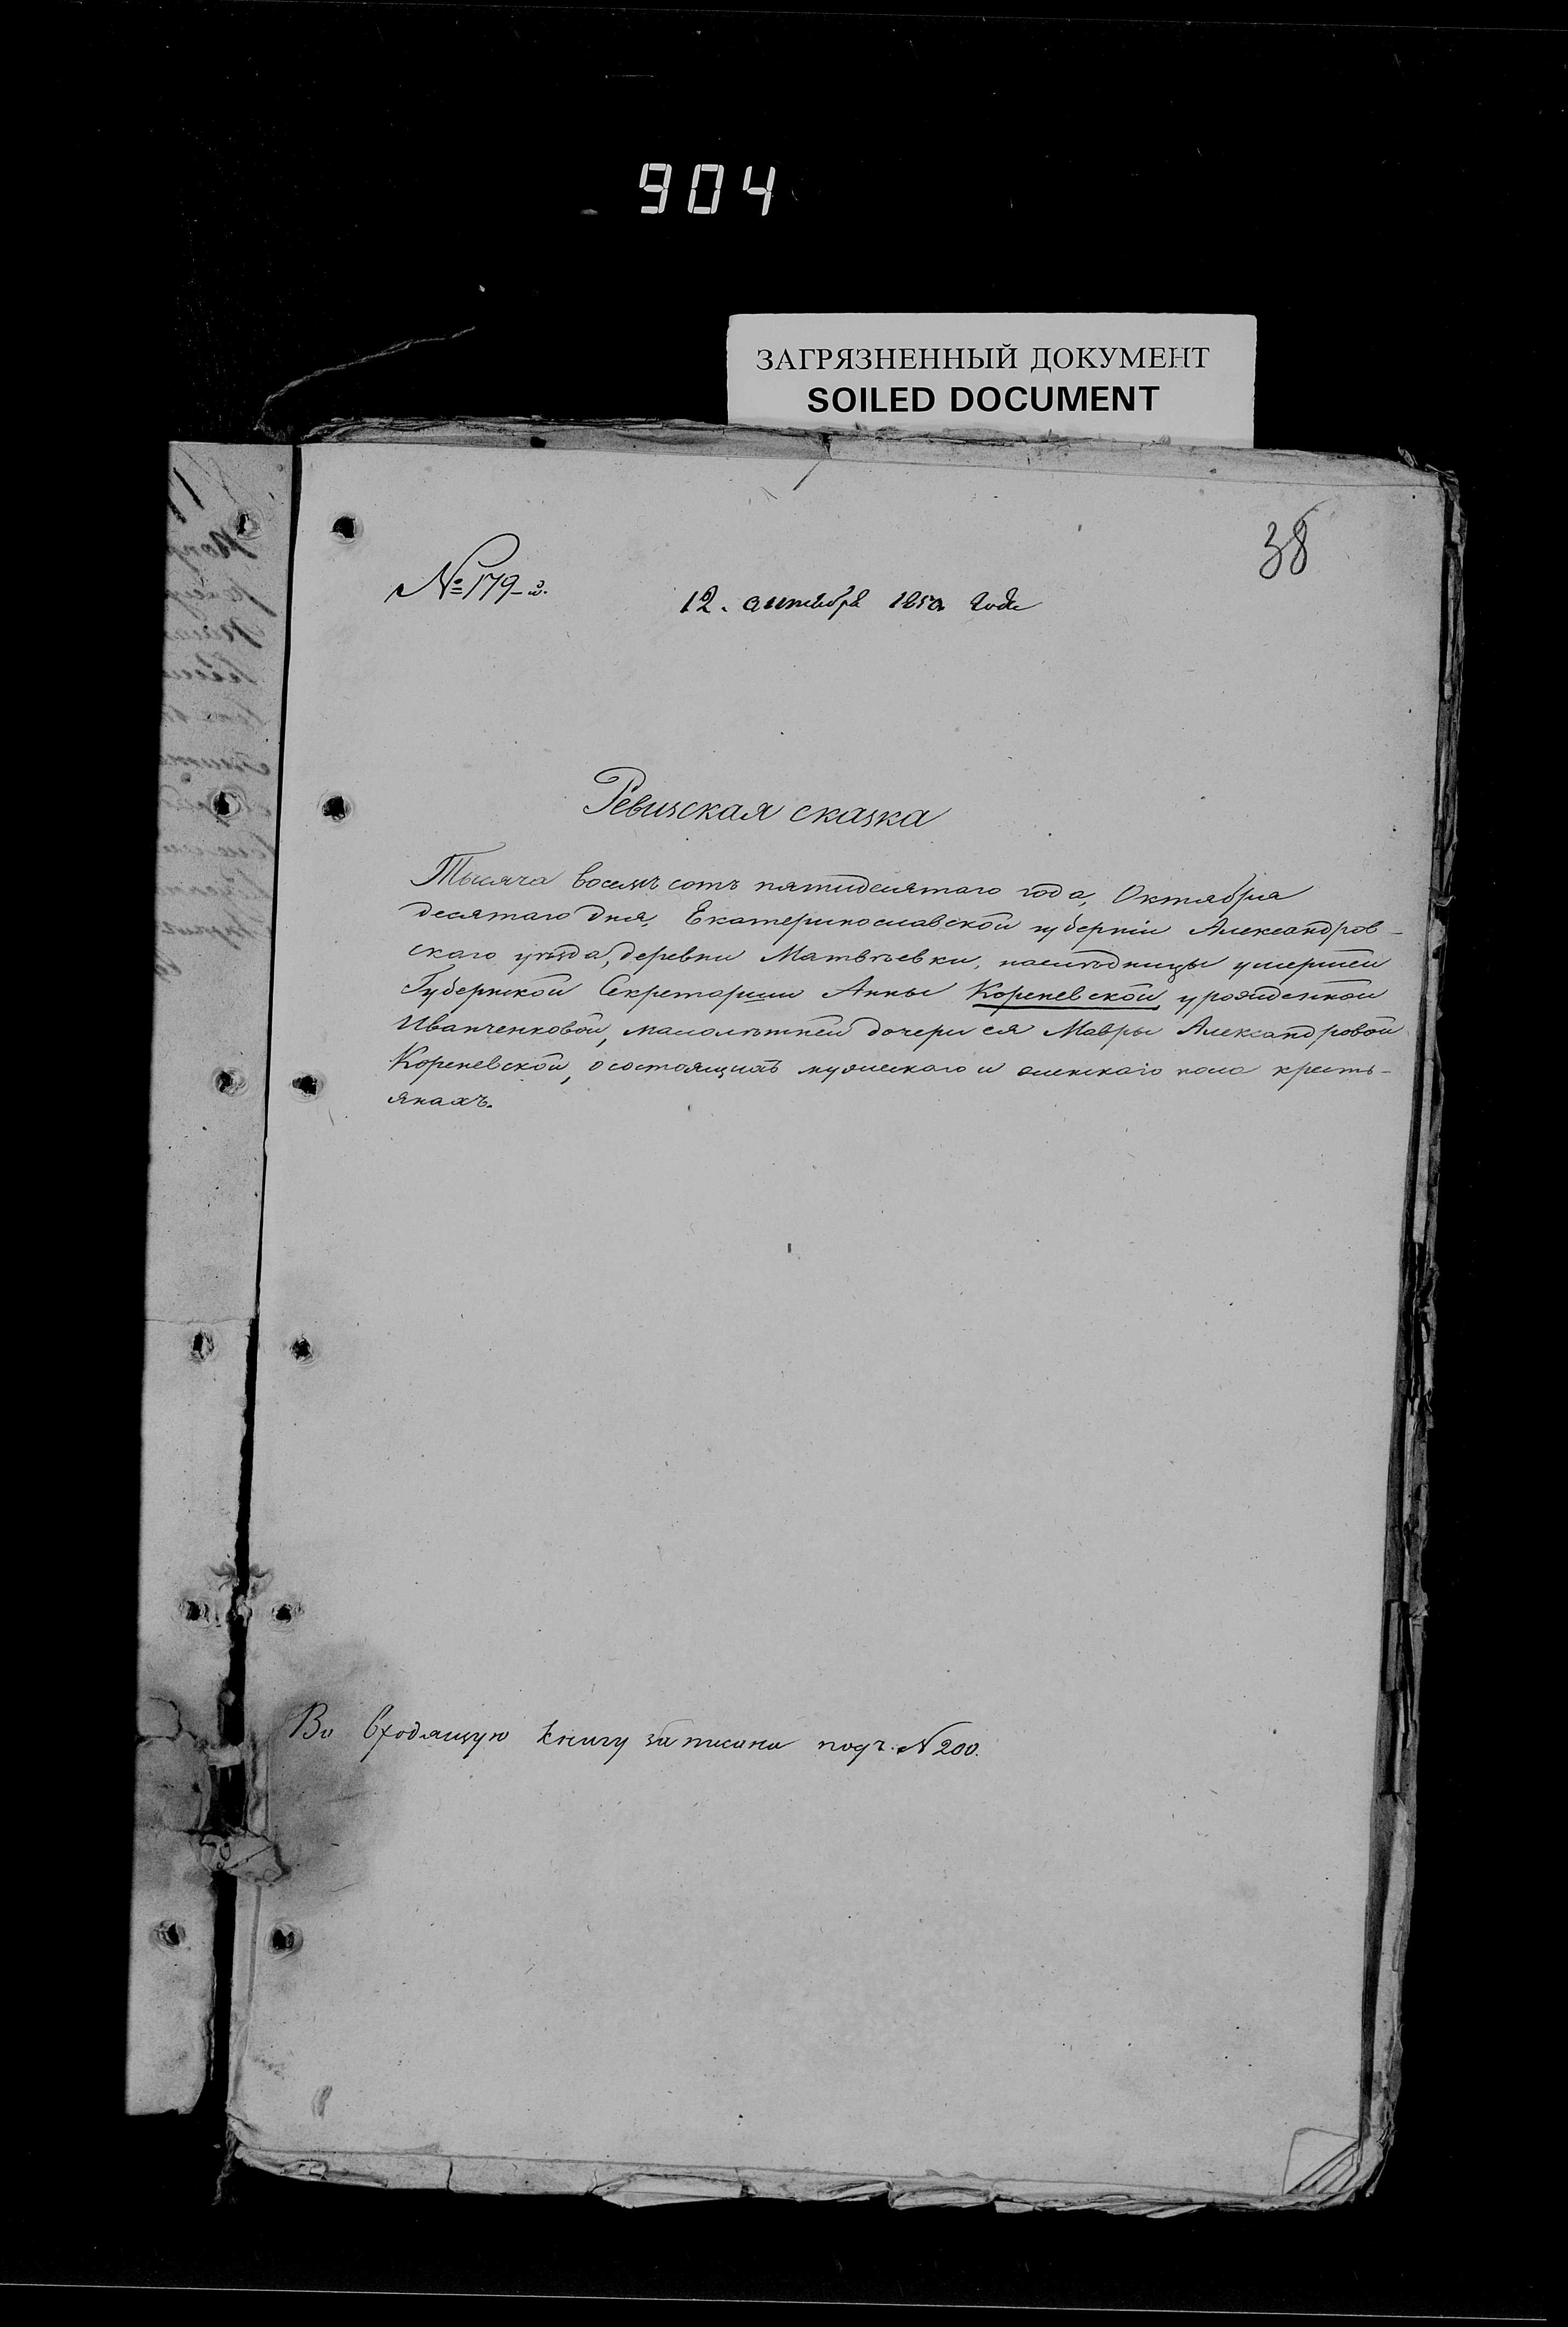 904
ЗАГРЯЗНЕННЫЙ ДОКУМЕНТ
SOILED DOCUMENT
38
№ 179-й.
12. октября 1850 года
Ревизская сказка
Тысяча восемь сотъ пятидесятаго года, Октября
десятаго дня, Екатеринославской губерніи Александров-
скаго уѣзда, деревни Матвѣевки, наслѣдницы умершей
Губернской Секретарши Анны Кореневской урожденной
Иванченковой, малолѣтней дочери ея Мавры Александровой
Кореневской, о состоящихъ мужескаго и женскаго пола кресть-
янахъ.
Во входящую книгу записана подъ N 200.